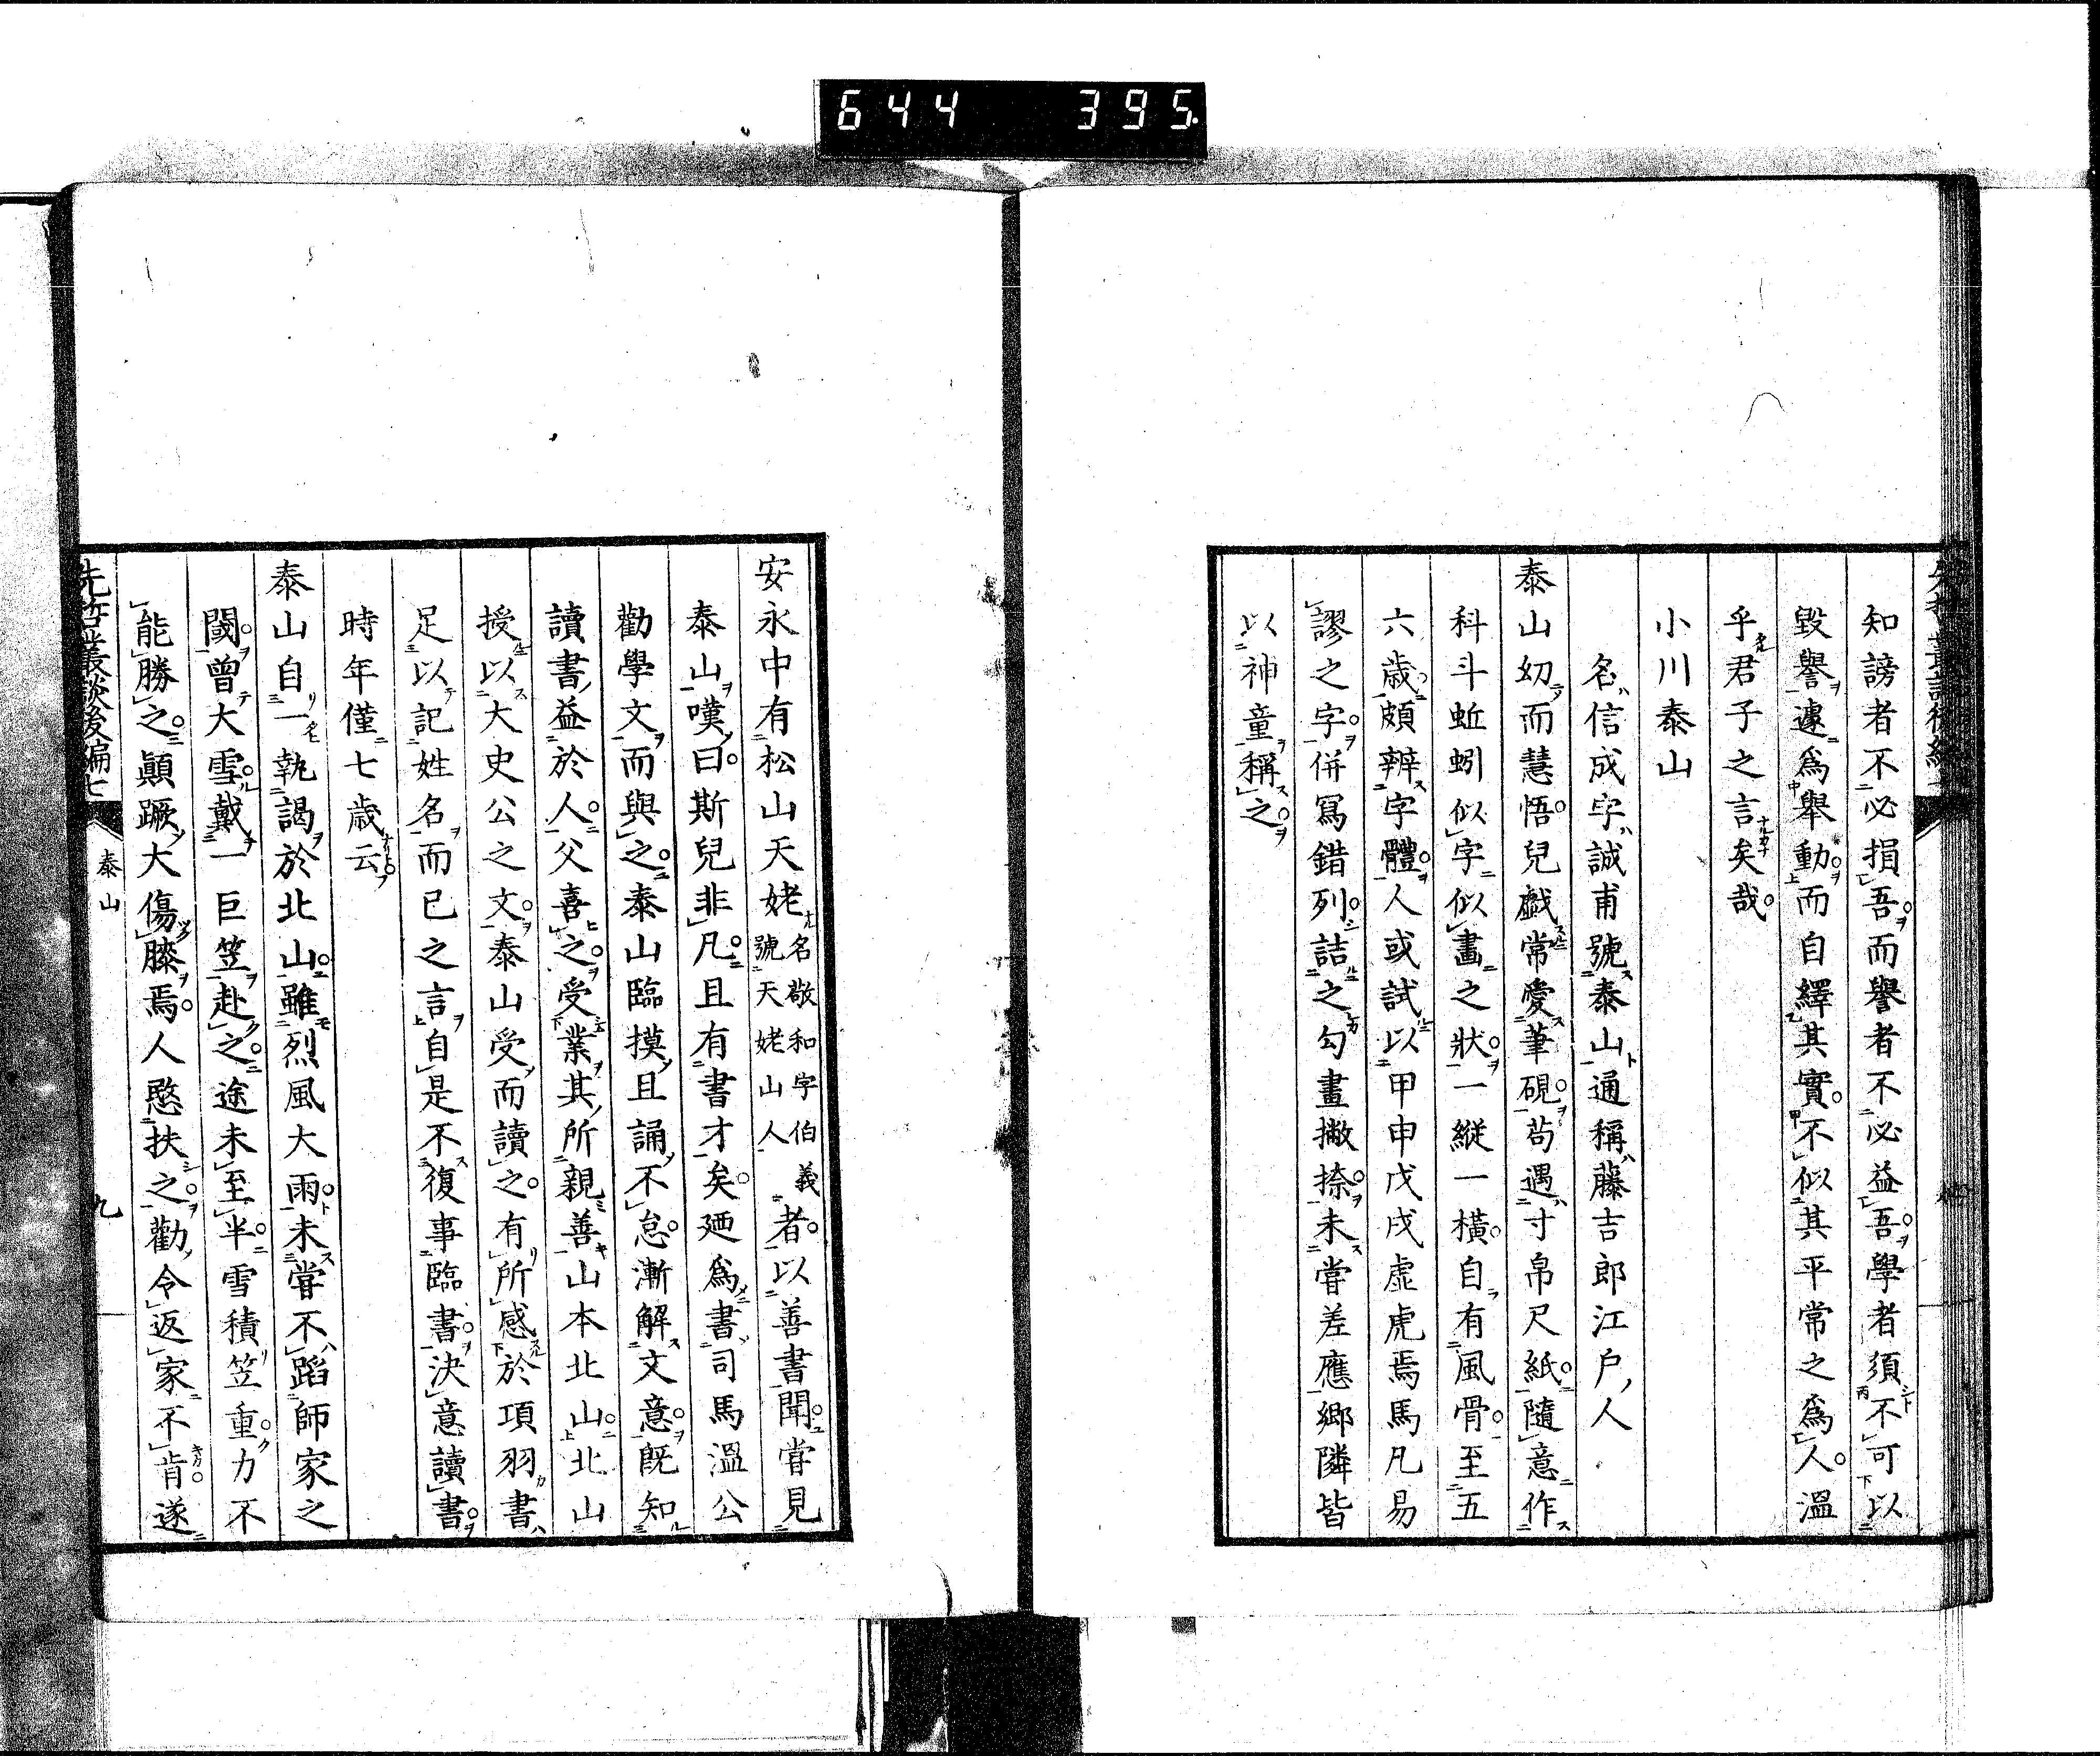 644 395.
知謗者不必損吾而譽者不必益吾學者須不可以
毀譽遽爲舉動而自繹其實不似其平常之爲人溫
乎君子之言矣哉
小川泰山
名信成字誠甫號泰山通稱藤吉郎江戶人
泰山幼而慧悟兒戲常愛筆硯苟遇寸帛尺紙隨意作
科斗蚯蚓似字似畫之狀一縱一橫自有風骨至五
六歲頗辨字體人或試以甲申戊戌虛虎焉馬凡易
謬之字併寫錯列詰之勾畫撇捺未嘗差應鄉隣皆
以神童稱之
安永中有松山天姥名敬和字伯義號天姥山人者以善書聞嘗見
泰山嘆曰斯兒非凡且有書才矣廼爲書司馬溫公
勸學文而與之泰山臨摸且誦不怠漸解文意旣知
讀書益於人父喜之受業其所親善山本北山北山
授以大史公之文泰山受而讀之有所感於項羽書
足以記姓名而已之言自是不復事臨書決意讀書
時年僅七歲云
泰山自一執謁於北山雖烈風大雨未嘗不蹈師家之
閾曾大雪戴一巨笠赴之途未至半雪積笠重力不
能勝之顚蹶大傷膝焉人愍扶之勸令返家不肯遂
先哲叢談後編七 泰山 九